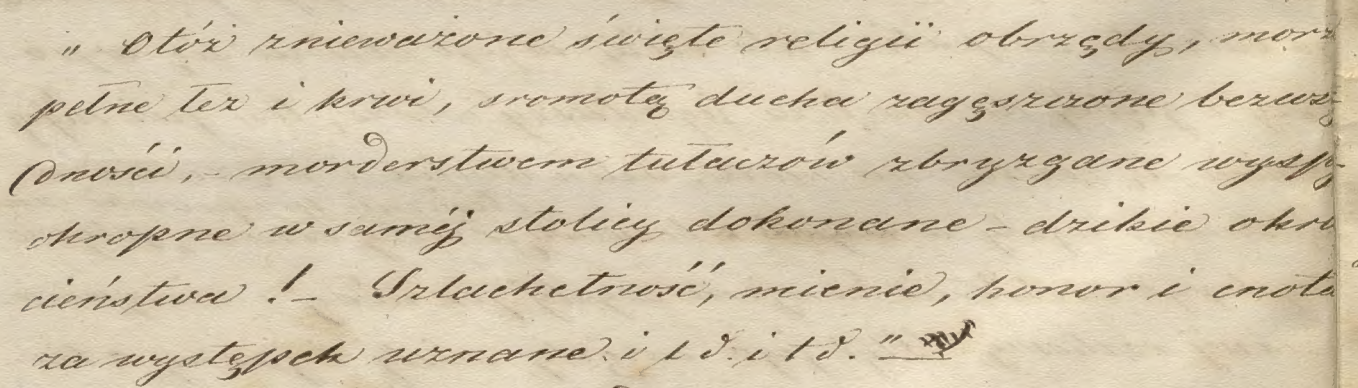 „Otóż znieważone święte religii obrzędy, morza
pełne łez i krwi, sromotą ducha zagęszczone bezwsty
dności, - morderstwem tułaczów zbryzgane wyspy
okropne w saméj stolicy dokonane - dzikie okru
cieństwa! - Szlachetność, mienie, honor i cnota
za występek uznane. i t d. i t d."